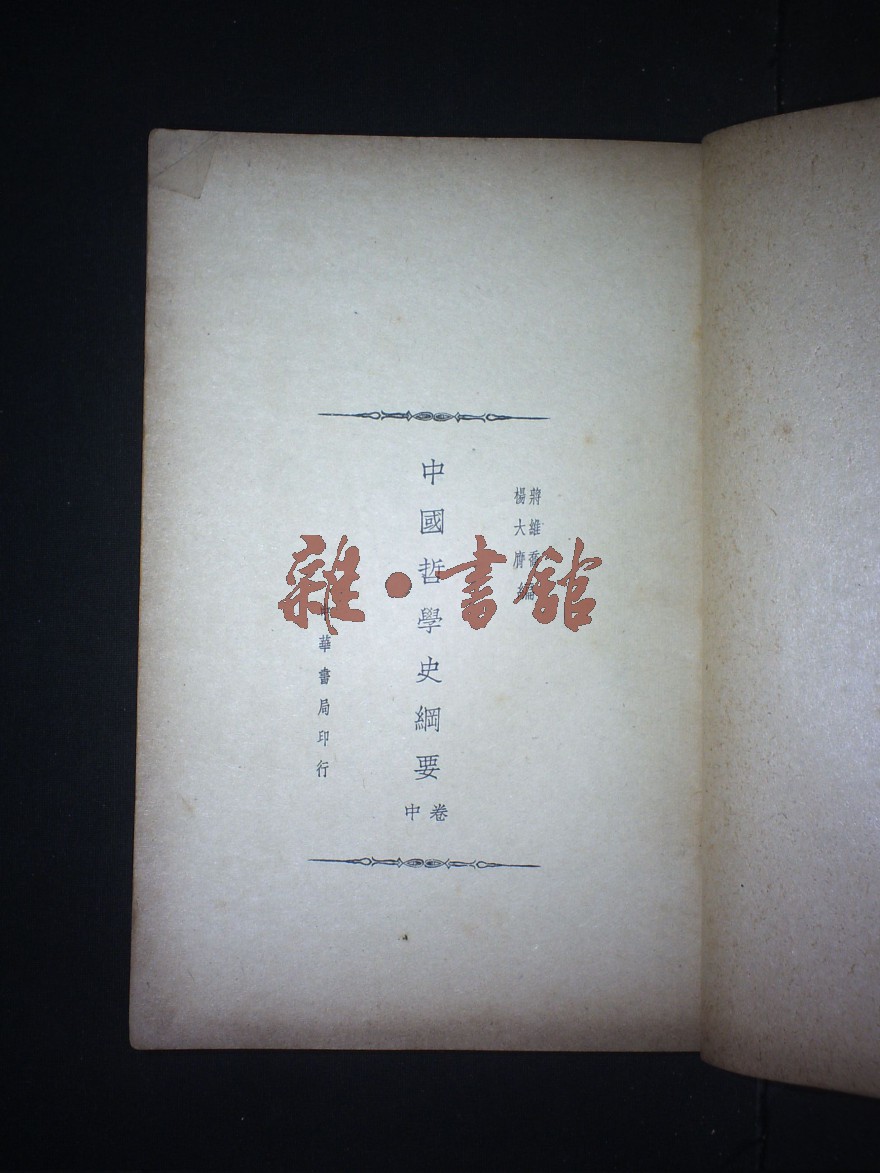 蔣維喬
楊大膺編
中國哲學史綱要
卷中
中華書局印行
雜·書館